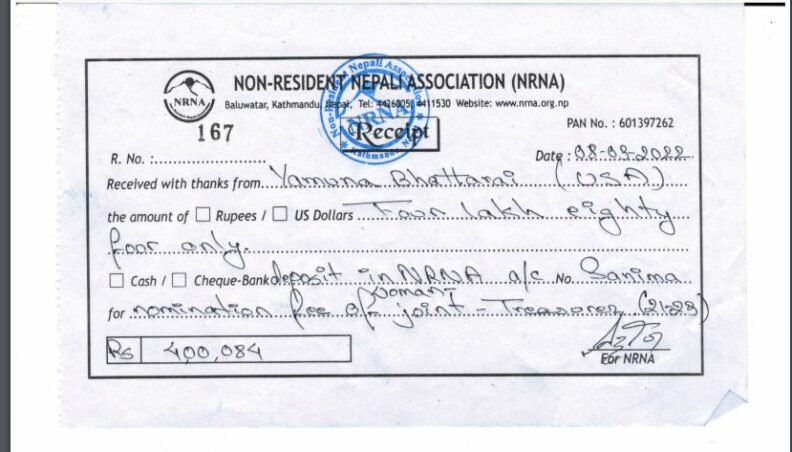 NON-RESIDENT NEPALI ASSOCIATION (NRNA)
NRNA
Baluwatar, Kathmandu, Nepal, Tel: 4426005, 4411530 Website: www.nrna.org.np
Non-Resident Nepali Association
NRNA
Kathmandu
167
Receipt
PAN No. : 601397262
R. No. :........................
Date : 08-03-2022
Received with thanks from Yamuna Bhattarai (USA)
the amount of ☐ Rupees / ☐ US Dollars Four lakh eighty
four only.
☐ Cash / ☐ Cheque-Bank deposit in NRNA a/c No. Sanima
for nomination fee of woman joint - Treasurer (21-23)
Rs 400,084
For NRNA